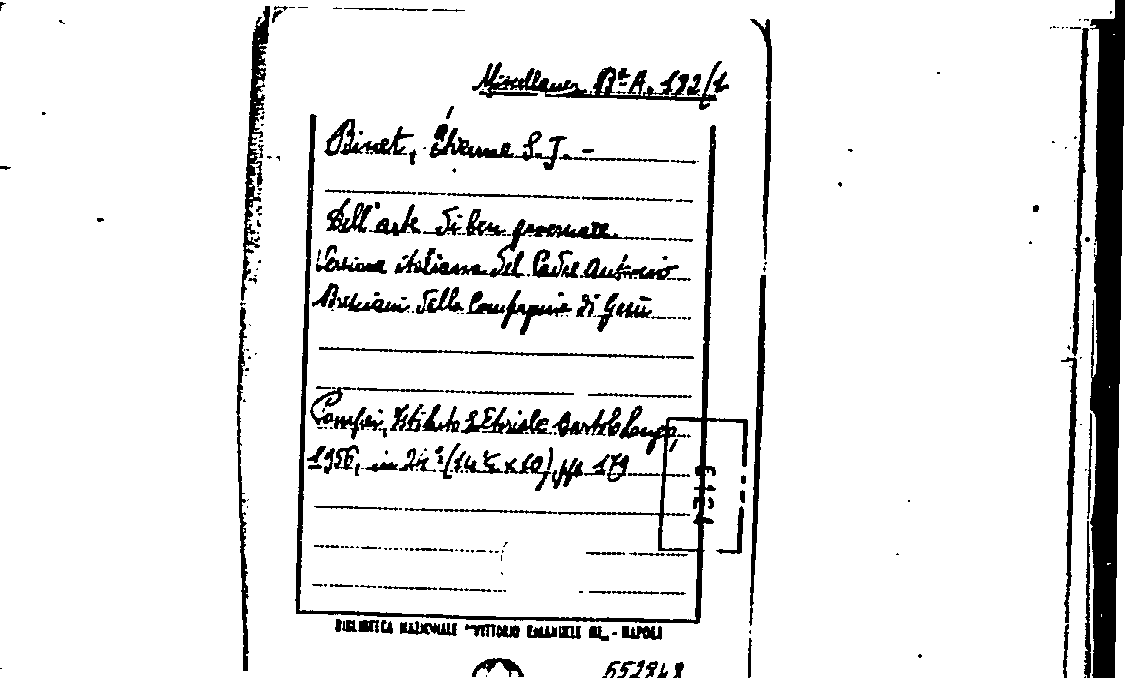 Miscellanea Bta A. 192/1
Binet, Étienne S.J. -
Dell'arte di ben governare.
Versione italiana del Padre Antonio
Bresciani della Compagnia di Gesù
Pompei, Istituto Editoriale Bartolo Longo,
1956, in 24° (14 ½ x 10), pp. 179
BIBLIOTECA NAZIONALE "VITTORIO EMANUELE III" - NAPOLI
552848